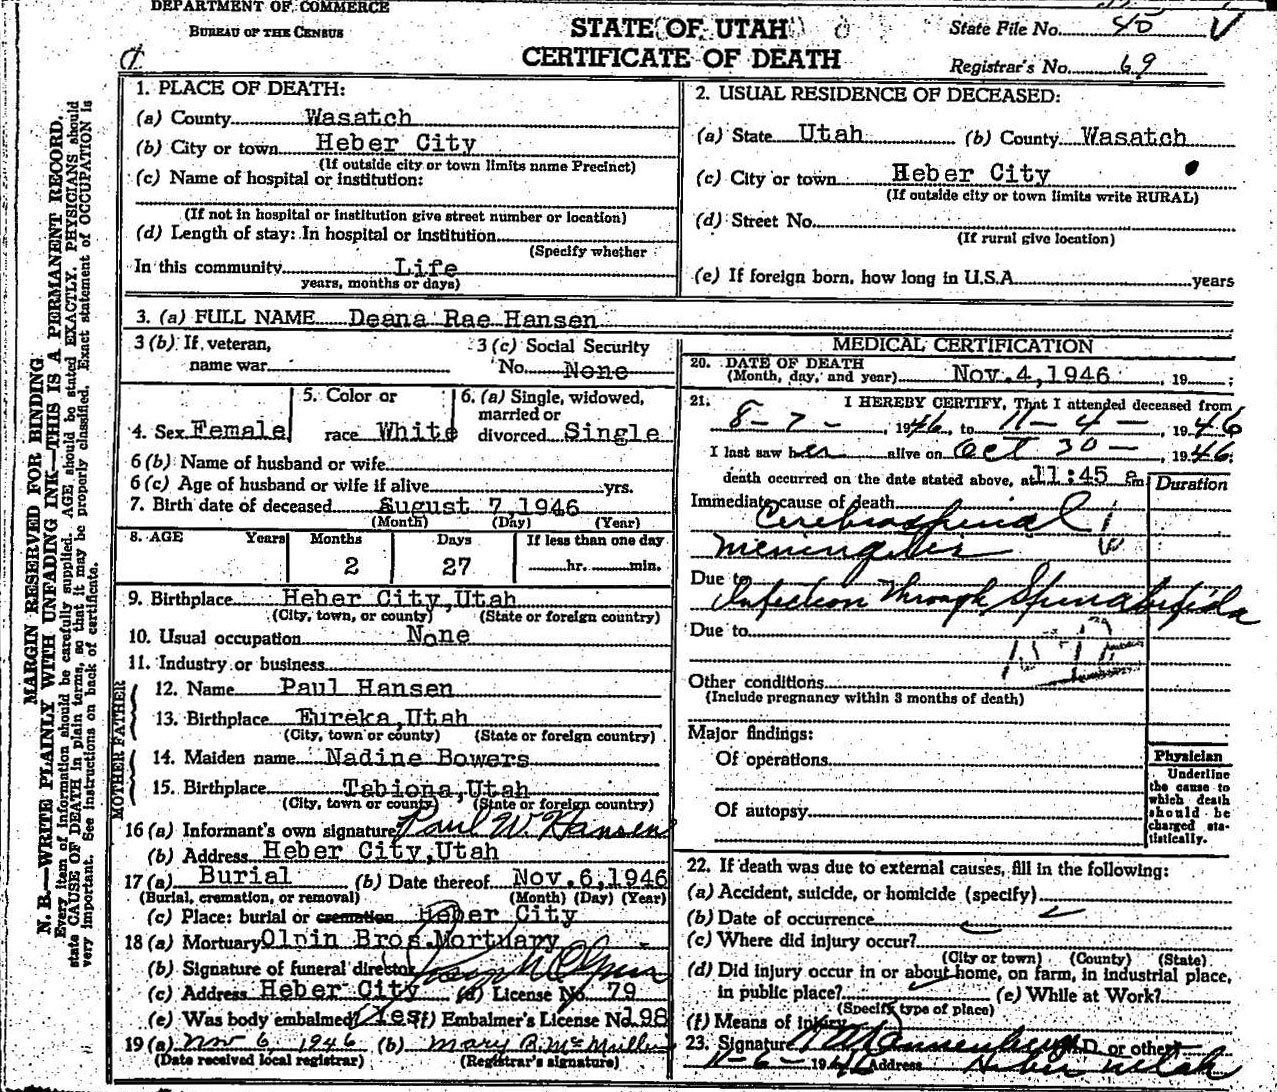 DEPARTMENT OF COMMERCE
BUREAU OF THE CENSUS
STATE OF UTAH
CERTIFICATE OF DEATH
State File No. 40
Registrar's No. 69
MARGIN RESERVED FOR BINDING
N. B.—WRITE PLAINLY WITH UNFADING INK—THIS IS A PERMANENT RECORD.
Every item of information should be carefully supplied. AGE should be stated EXACTLY. PHYSICIANS should
state CAUSE OF DEATH in plain terms, so that it may be properly classified. Exact statement of OCCUPATION is
very important. See instructions on back of certificate.
1. PLACE OF DEATH:
(a) County Wasatch
(b) City or town Heber City
(If outside city or town limits name Precinct)
(c) Name of hospital or institution:
(If not in hospital or institution give street number or location)
(d) Length of stay: In hospital or institution
(Specify whether
In this community Life
years, months or days)
2. USUAL RESIDENCE OF DECEASED:
(a) State Utah (b) County Wasatch
(c) City or town Heber City
(If outside city or town limits write RURAL)
(d) Street No.
(If rural give location)
(e) If foreign born, how long in U.S.A. years
3. (a) FULL NAME Deana Rae Hansen
3 (b) If veteran,
name war
3 (c) Social Security
No. None
4. Sex Female
5. Color or
race White
6. (a) Single, widowed,
married or
divorced Single
6 (b) Name of husband or wife
6 (c) Age of husband or wife if alive yrs.
7. Birth date of deceased August 7, 1946
(Month) (Day) (Year)
8. AGE Years Months Days If less than one day
2 27 hr. min.
9. Birthplace Heber City, Utah
(City, town, or county) (State or foreign country)
10. Usual occupation None
11. Industry or business
FATHER
12. Name Paul Hansen
13. Birthplace Eureka, Utah
(City, town or county) (State or foreign country)
MOTHER
14. Maiden name Nadine Bowers
15. Birthplace Tabiona, Utah
(City, town or county) (State or foreign country)
16 (a) Informant's own signature Paul W. Hansen
(b) Address Heber City, Utah
17 (a) Burial (b) Date thereof Nov. 6, 1946
(Burial, cremation, or removal) (Month) (Day) (Year)
(c) Place: burial or cremation Heber City
18 (a) Mortuary Olpin Bros. Mortuary
(b) Signature of funeral director
(c) Address Heber City (d) License No. 79
(e) Was body embalmed? Yes (f) Embalmer's License No. 198
19 (a) Nov 6, 1946 (b) Mary B. McMullin
(Date received local registrar) (Registrar's signature)
MEDICAL CERTIFICATION
20. DATE OF DEATH
(Month, day, and year) Nov. 4, 1946, 19 ;
21. I HEREBY CERTIFY, That I attended deceased from
8-7-, 1946, to 11-4-, 1946
I last saw her alive on Oct 30-, 1946;
death occurred on the date stated above, at 11:45 a m
Duration
Immediate cause of death
Cerebrospinal
Meningitis
Due to
Infection through Spina bifida
Due to
Other conditions
(Include pregnancy within 3 months of death)
Major findings:
Of operations
Of autopsy
Physician
Underline
the cause to
which death
should be
charged sta-
tistically.
22. If death was due to external causes, fill in the following:
(a) Accident, suicide, or homicide (specify)
(b) Date of occurrence
(c) Where did injury occur?
(City or town) (County) (State)
(d) Did injury occur in or about home, on farm, in industrial place,
in public place? (e) While at Work?
(Specify type of place)
(f) Means of injury
23. Signature M.D. or other
11-6-1946 Address Heber Utah